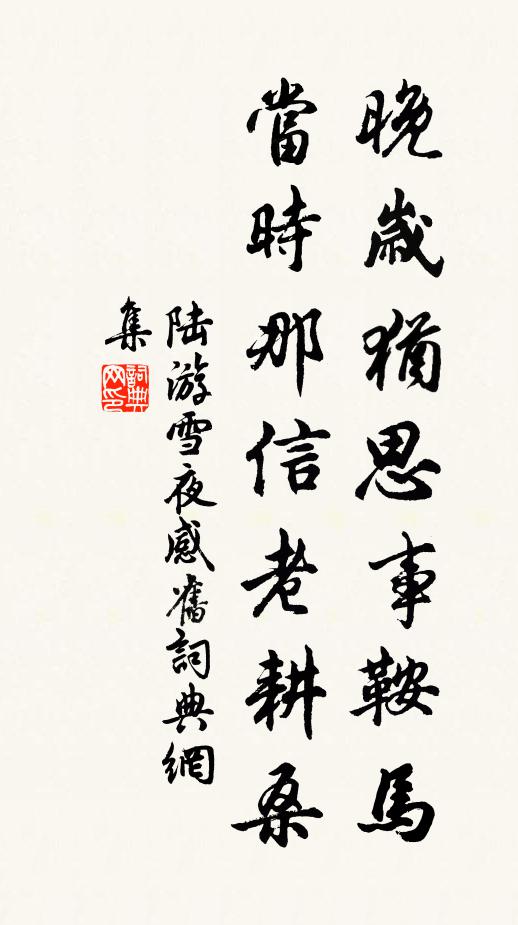 晚歲猶思事鞍馬
當時那信老耕桑
陸游雪夜感舊詞典網
集
詞典網印